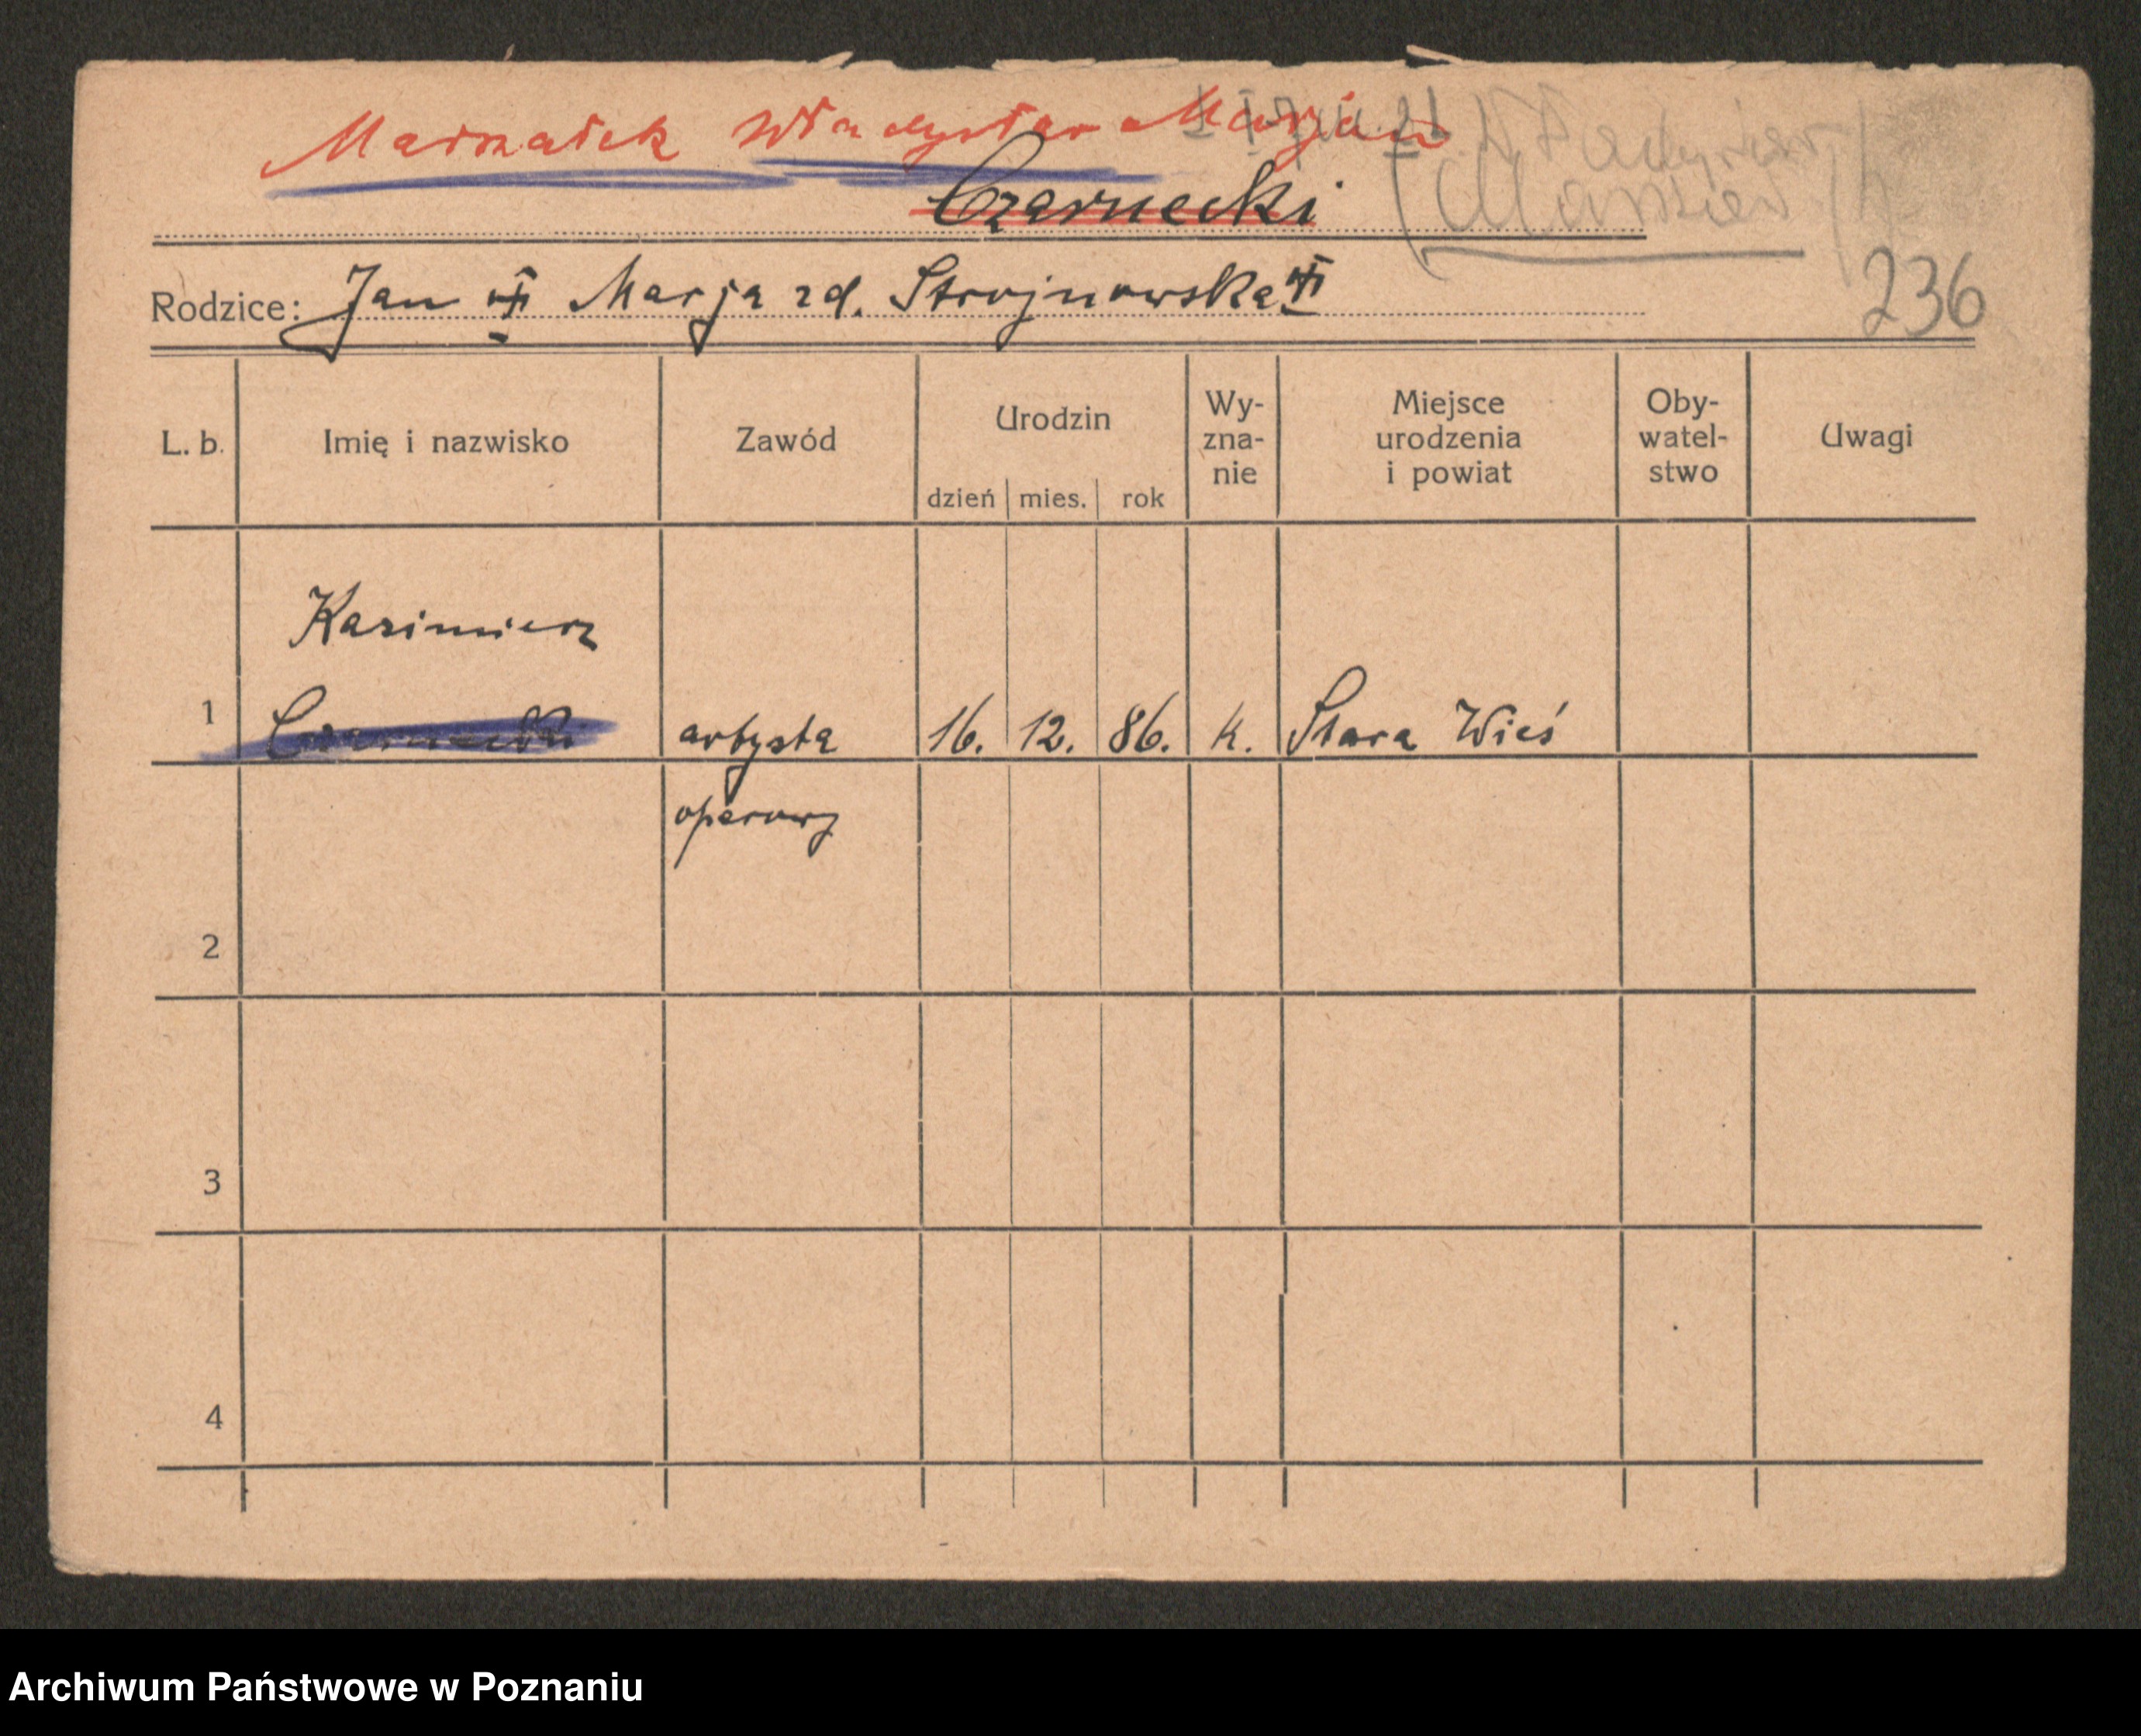 Marszałek Władysław Marjan
Władysław
Czarnecki
236
Rodzice: Jan Marja zd. Strojnowska
L. b. Imię i nazwisko Zawód Urodzin dzień mies. rok Wy-zna-nie Miejsce urodzenia i powiat Oby-watel-stwo Uwagi
Kazimierz
1 Czarnecki artysta 16. 12. 86. k. Stara Wieś
operowy
2
3
4
Archiwum Państwowe w Poznaniu